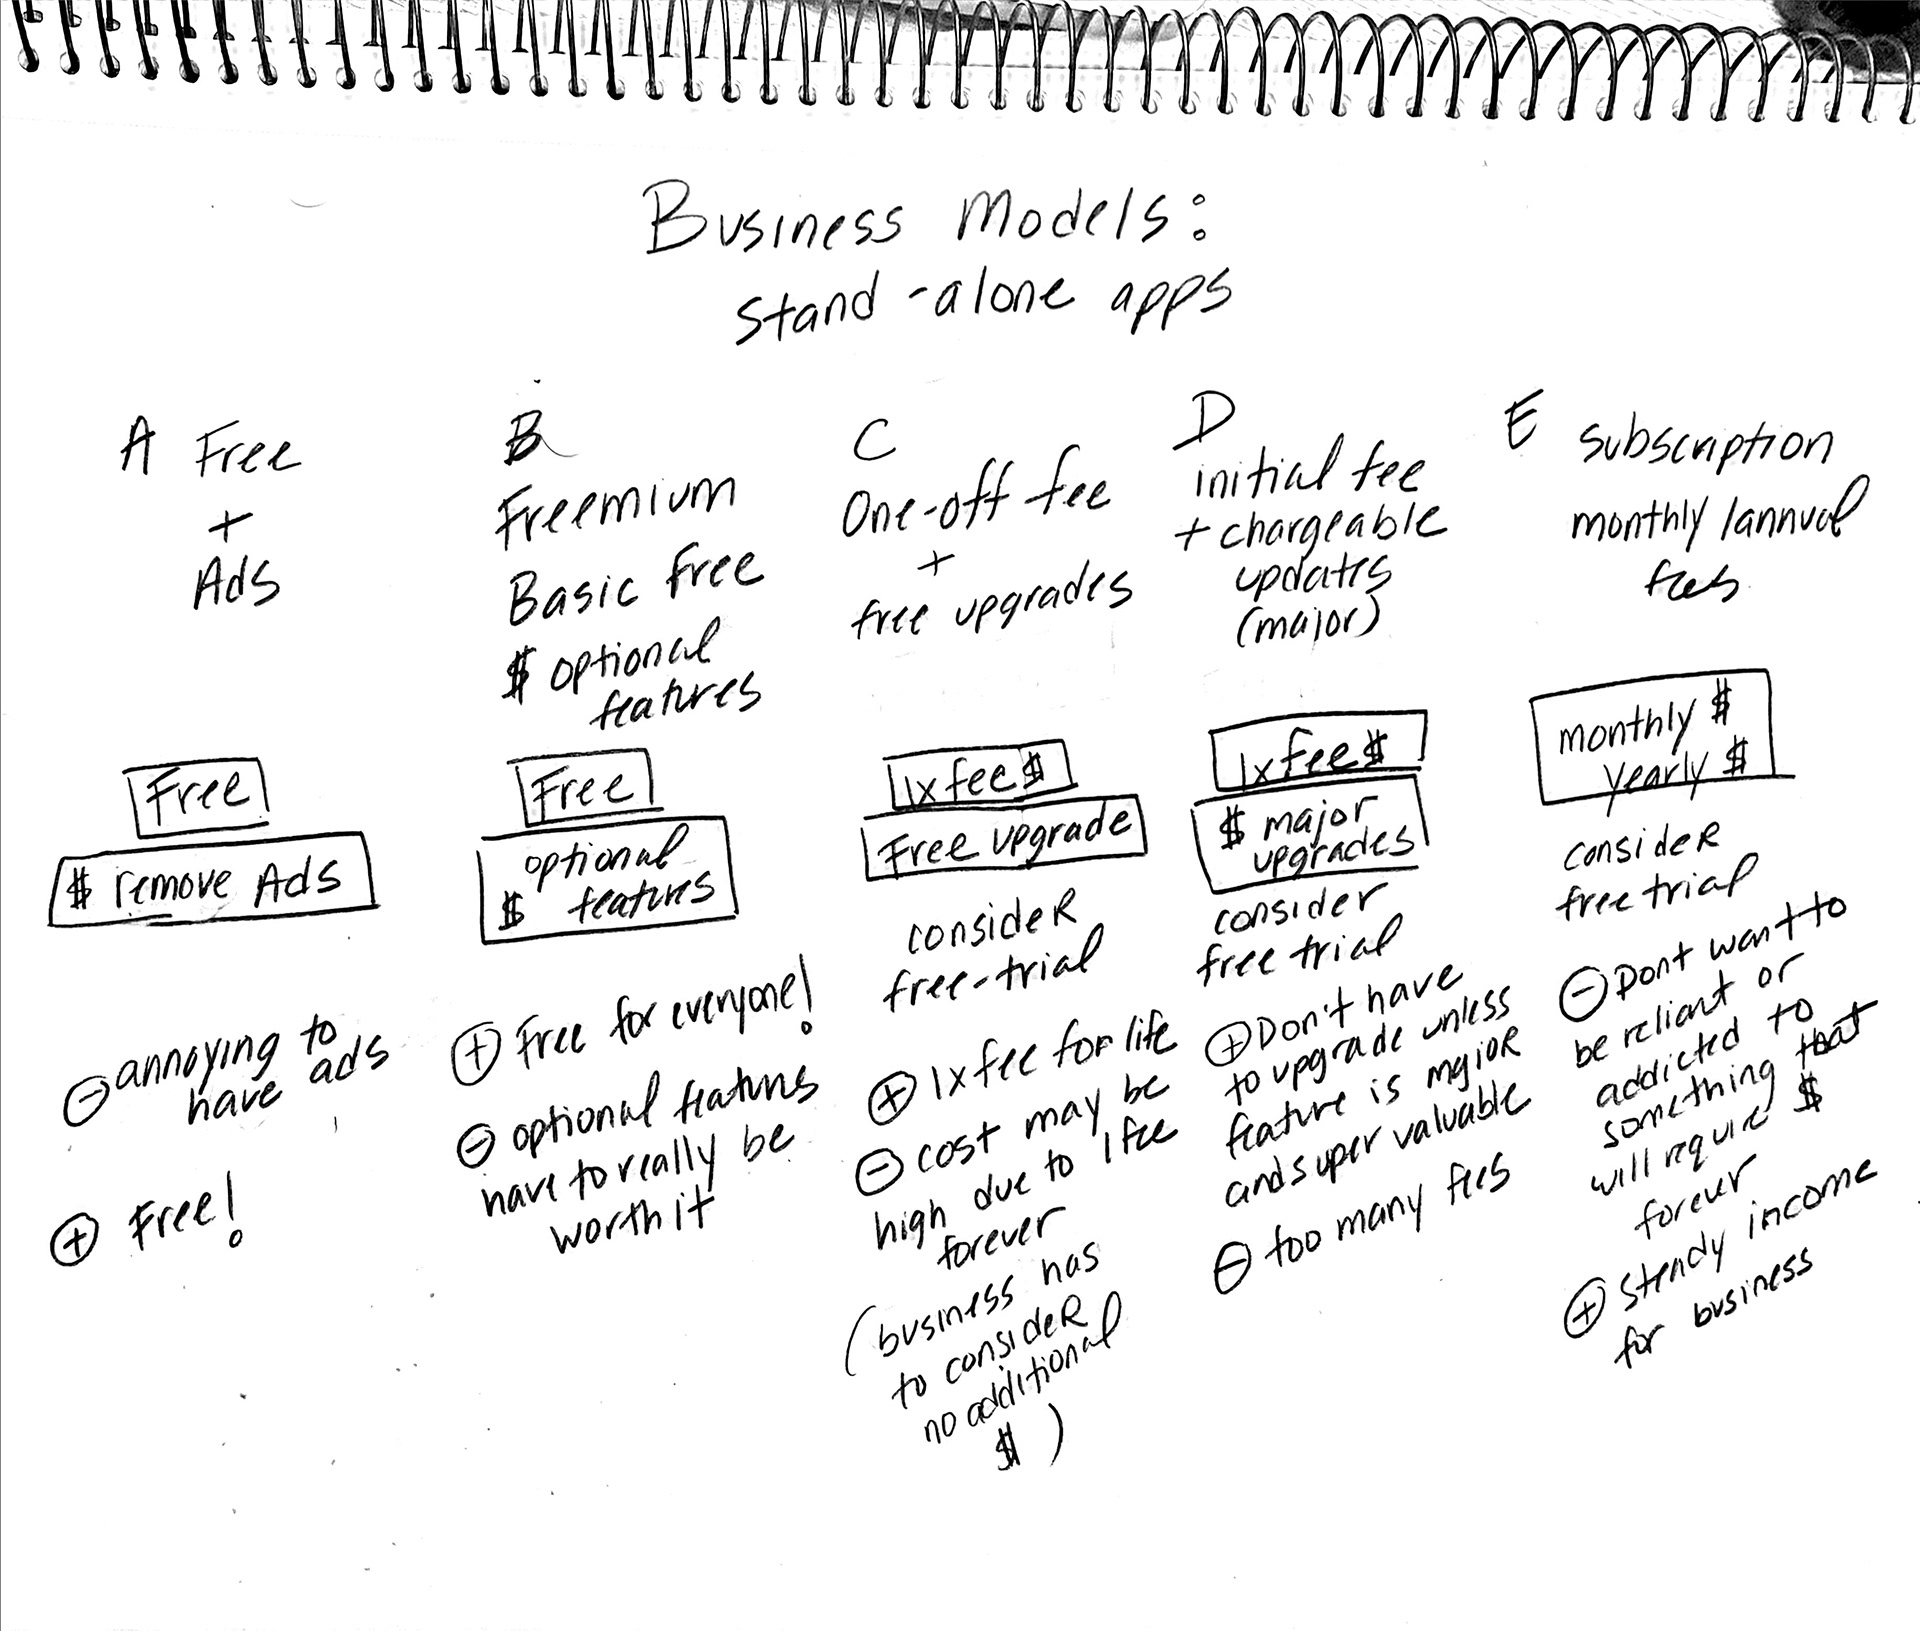 Business Models:
stand-alone apps
A Free
+
Ads
Free
$ remove Ads
⊖ annoying to
have ads
⊕ Free!
B
Freemium
Basic free
$ optional
features
Free
optional
$ features
⊕ Free for everyone!
⊖ optional features
have to really be
worth it
C
One-off fee
+
free upgrades
1x fee $
Free upgrade
consider
free-trial
⊕ 1x fee for life
⊖ cost may be
high due to 1 fee
forever
(business has
to consider
no additional
$)
D
initial fee
+ chargeable
updates
(major)
1x fee $
$ major
upgrades
consider
free trial
⊕ Don't have
to upgrade unless
feature is major
and super valuable
⊖ too many fees
E subscription
monthly/annual
fees
monthly $
yearly $
consider
free trial
⊖ Dont want to
be reliant or
addicted to
something that
will require $
forever
⊕ steady income
for business